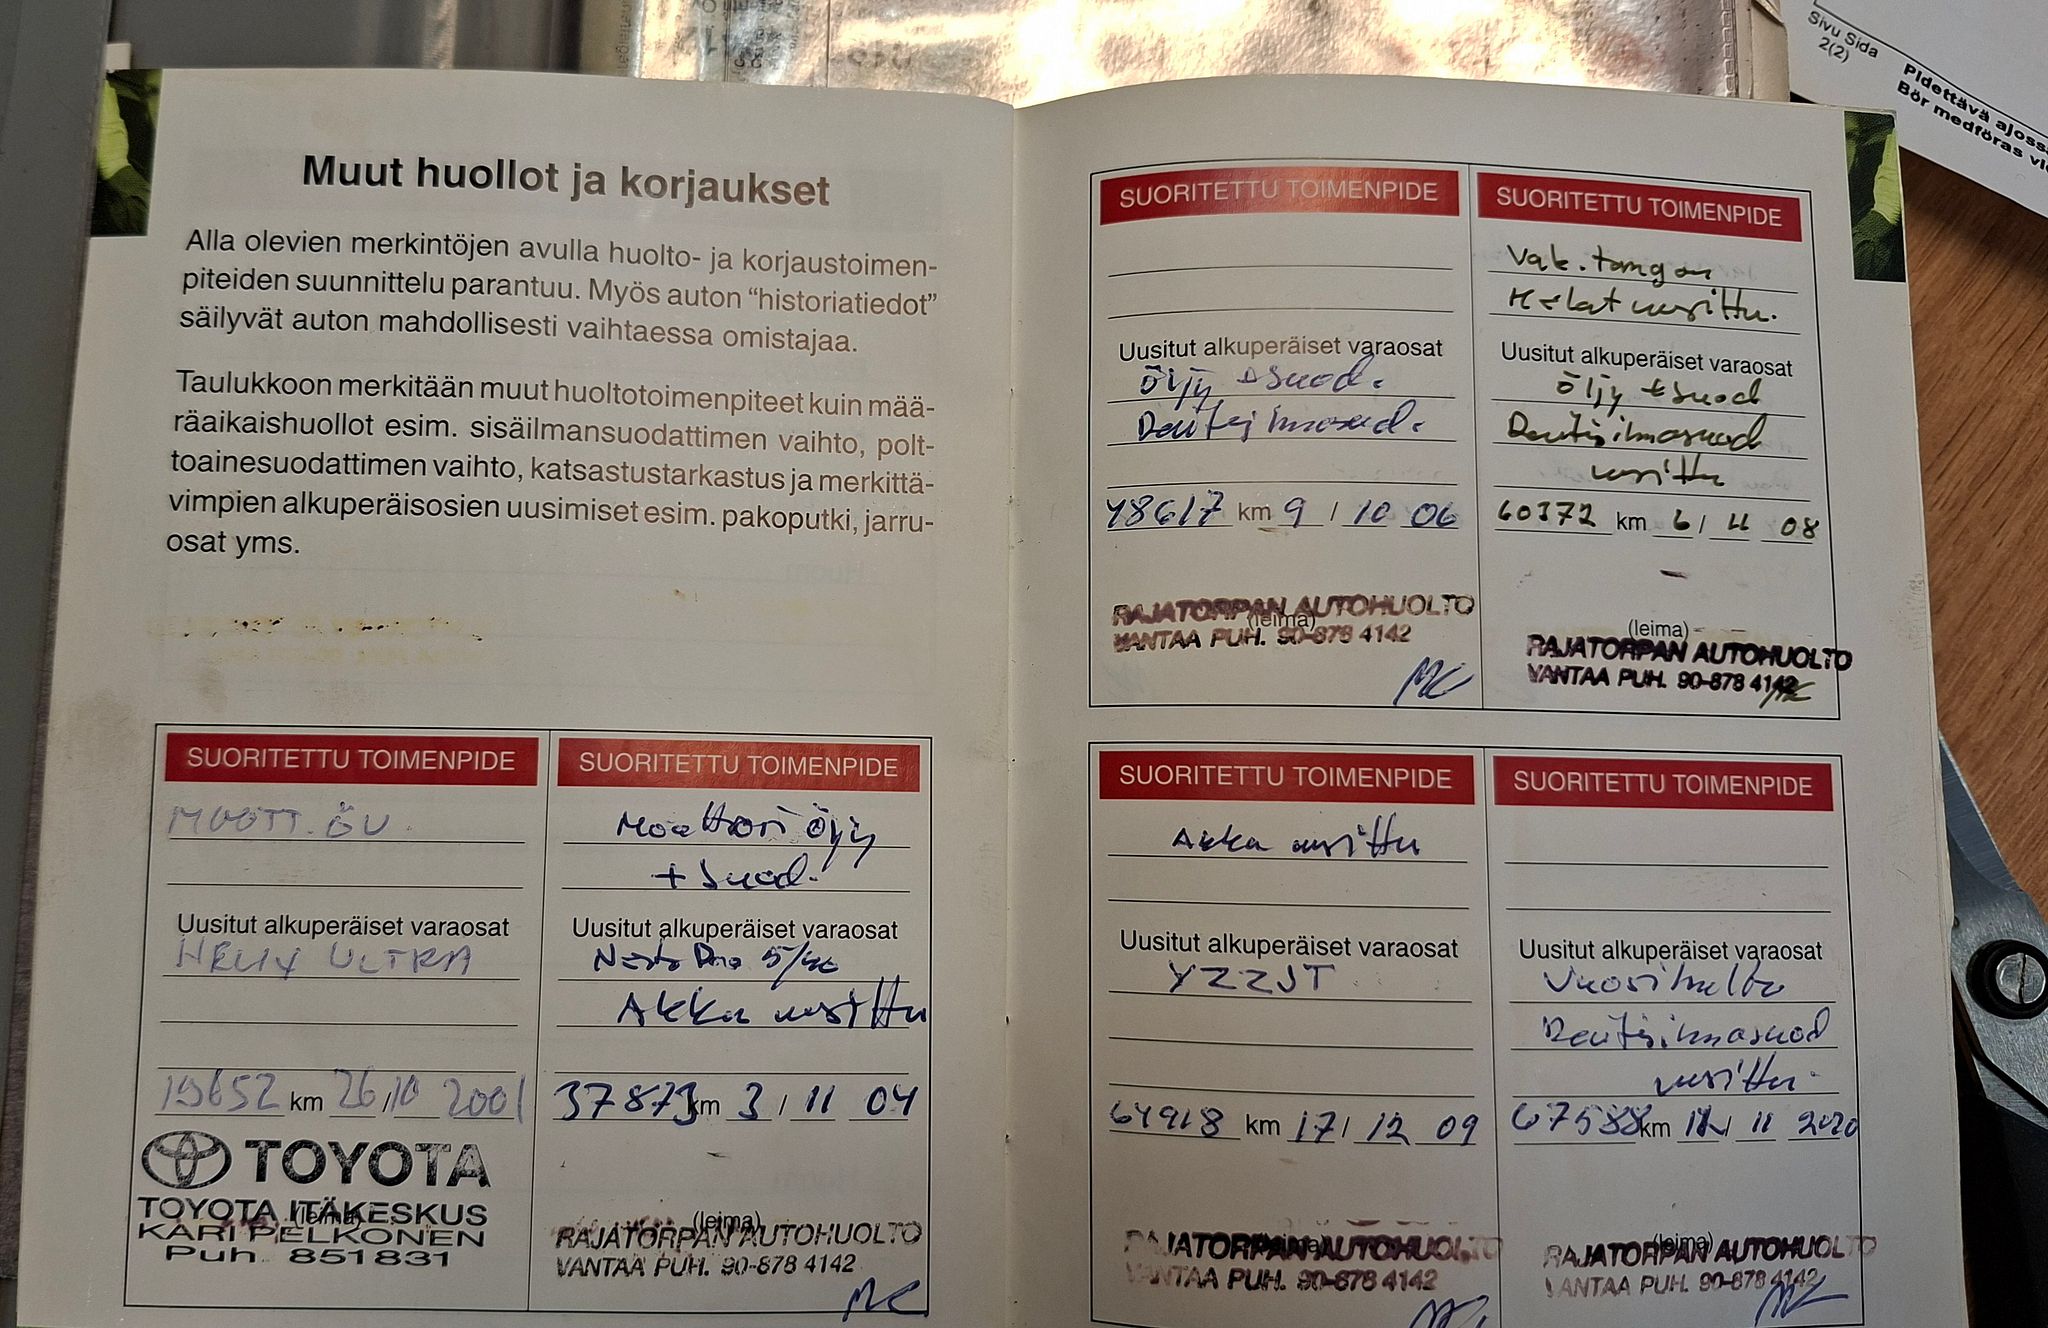 Sivu Sida
2(2)
Pidettävä ajoss
Bör medföras
Muut huollot ja korjaukset
Alla olevien merkintöjen avulla huolto- ja korjaustoimen-
piteiden suunnittelu parantuu. Myös auton “historiatiedot”
säilyvät auton mahdollisesti vaihtaessa omistajaa.
Taulukkoon merkitään muut huoltotoimenpiteet kuin mää-
räaikaishuollot esim. sisäilmansuodattimen vaihto, polt-
toainesuodattimen vaihto, katsastustarkastus ja merkittä-
vimpien alkuperäisosien uusimiset esim. pakoputki, jarru-
osat yms.
SUORITETTU TOIMENPIDE
MOOTT. ÖV
Uusitut alkuperäiset varaosat
HELIX ULTRA
19652 km 26/10 2001
(leima)
TOYOTA
TOYOTA ITÄKESKUS
KARI PELKONEN
Puh. 851831
SUORITETTU TOIMENPIDE
Moottori öljy
+ Suod.
Uusitut alkuperäiset varaosat
Neste Pro 5/40
Akku uusittu
37873 km 3 / 11 04
(leima)
RAJATORPAN AUTOHUOLTO
VANTAA PUH. 90-878 4142
SUORITETTU TOIMENPIDE
Uusitut alkuperäiset varaosat
Öljy + Suod.
Raitisilmasuod.
48617 km 9 / 10 06
(leima)
RAJATORPAN AUTOHUOLTO
VANTAA PUH. 90-878 4142
SUORITETTU TOIMENPIDE
Vak.tangon
K-lat uusittu.
Uusitut alkuperäiset varaosat
Öljy + Suod
Raitisilmasuod
uusittu
60372 km 6 / 11 08
(leima)
RAJATORPAN AUTOHUOLTO
VANTAA PUH. 90-878 4142
SUORITETTU TOIMENPIDE
Akku uusittu
Uusitut alkuperäiset varaosat
YZZJT
64918 km 17/ 12 09
RAJATORPAN AUTOHUOLTO
VANTAA PUH. 90-878 4142
SUORITETTU TOIMENPIDE
Uusitut alkuperäiset varaosat
Vuosihuolto
Raitisilmasuod
uusittu.
67588 km / 11 2010
(leima)
RAJATORPAN AUTOHUOLTO
VANTAA PUH. 90-878 4142